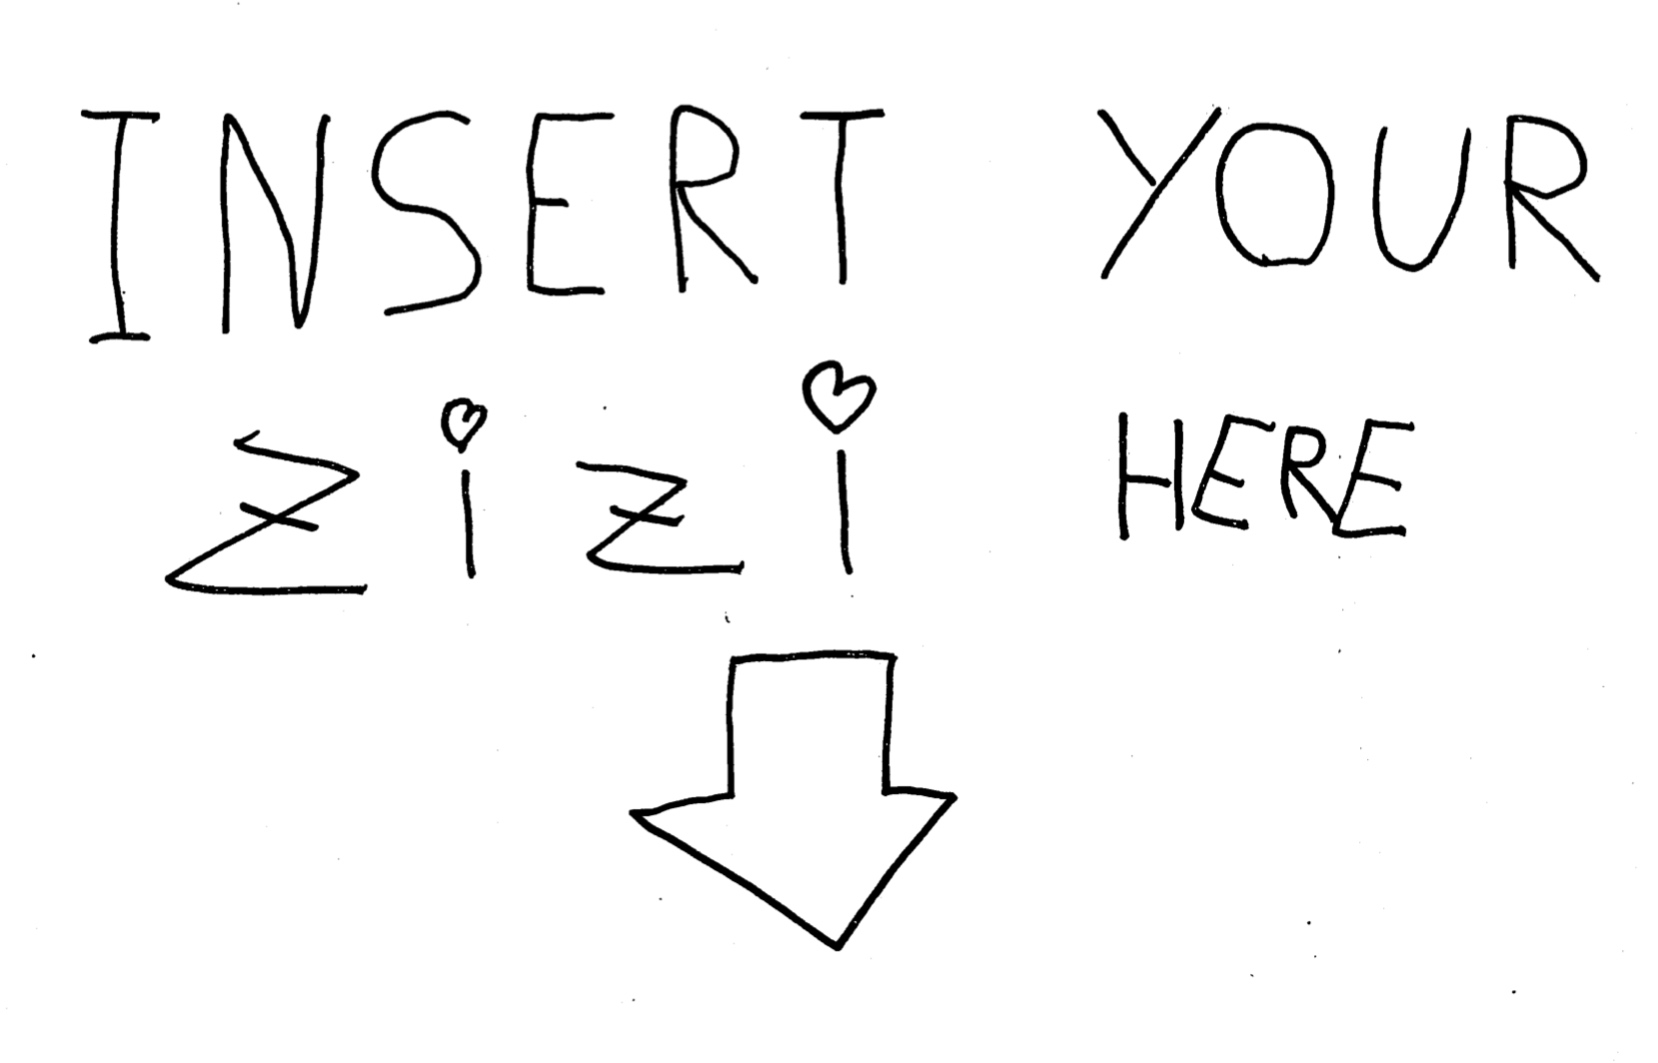 INSERT YOUR
zizi HERE